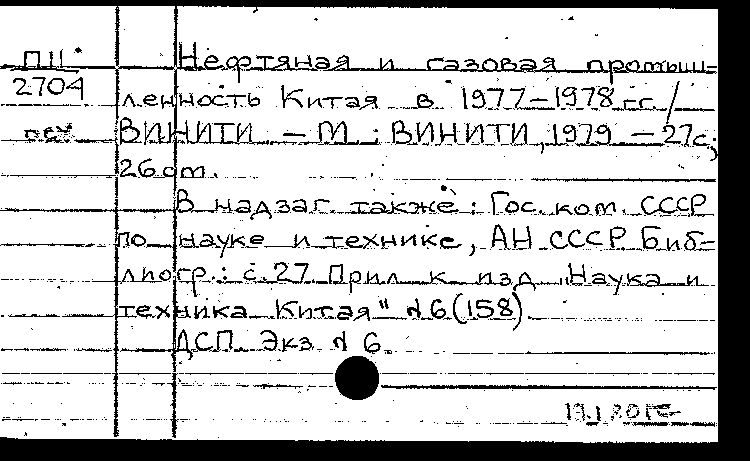 П11
2704
Нефтяная и газовая промыш-
ленность Китая в 1977–1978 гг. /
ВИНИТИ. – М.: ВИНИТИ, 1979. – 27с;
26см.
В надзаг. также: Гос. ком. СССР
по науке и технике, АН СССР. Биб-
лиогр.: с.27. Прил. к изд. "Наука и
техника Китая" №6(158).
ДСП. Экз. № 6.